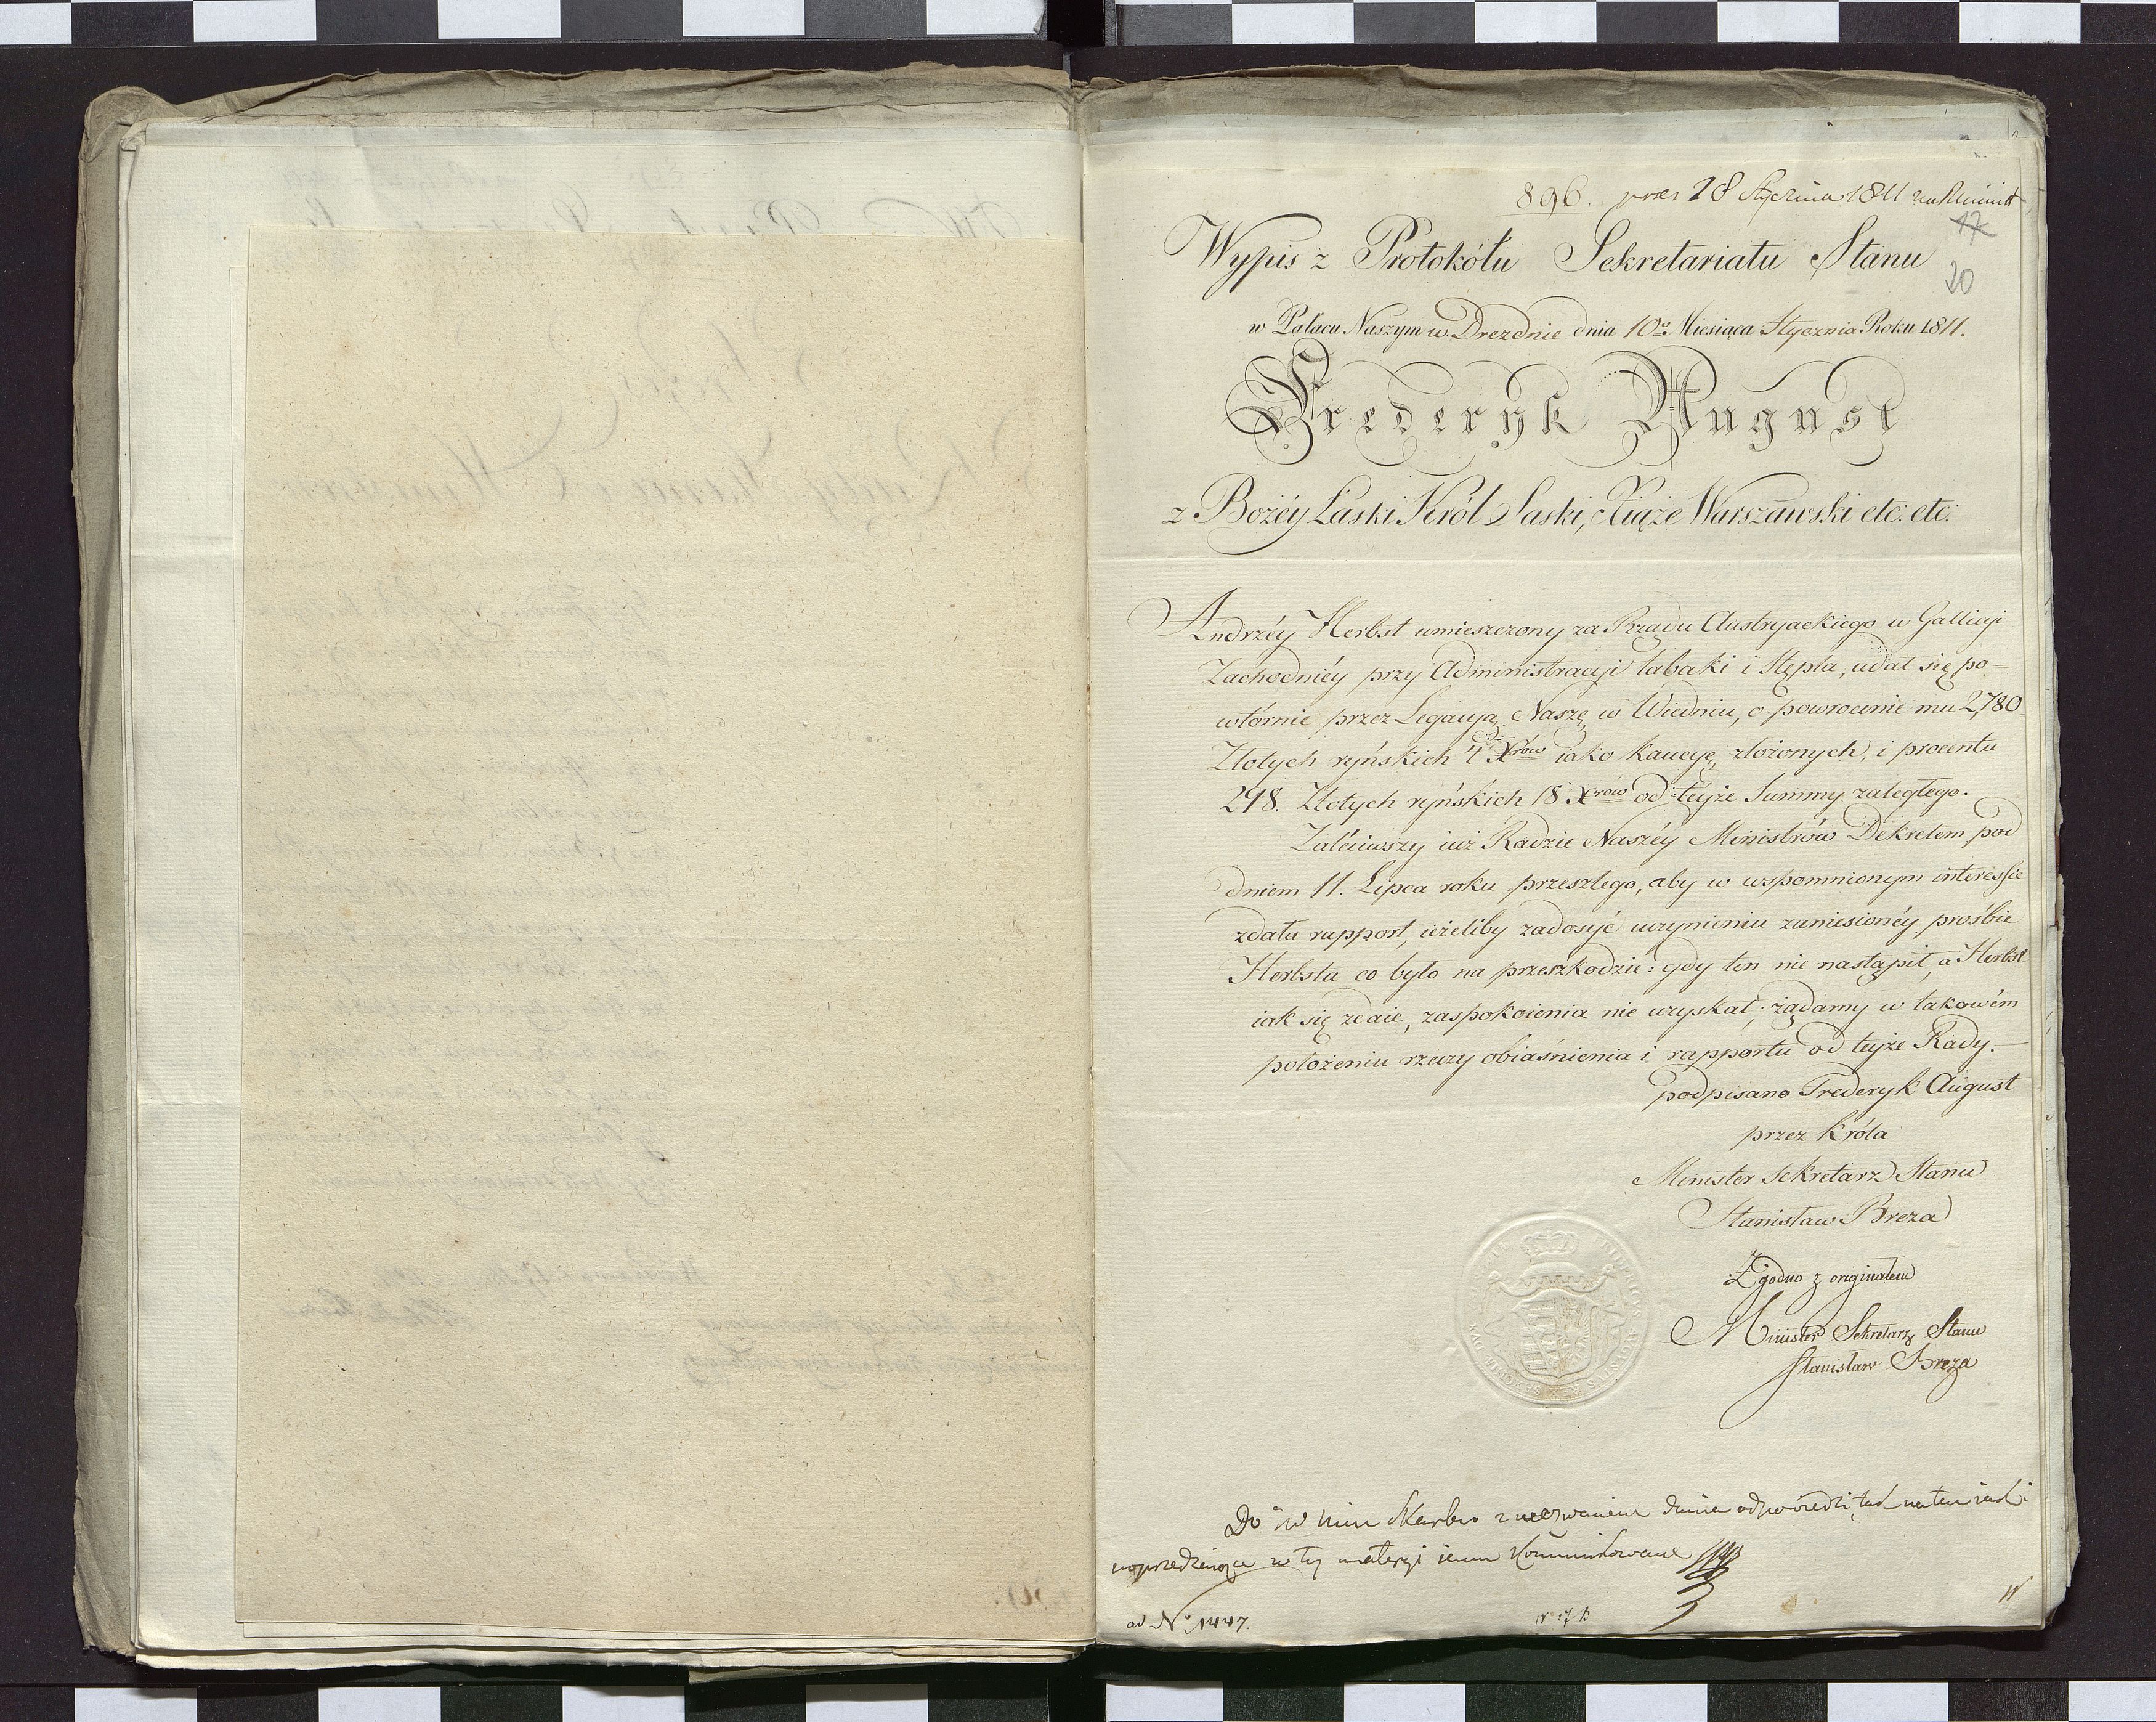 896. 28 Stycznia 1811
17
Wypis z Protokółu Sekretariatu Stanu
20
w Pałacu Naszym w Dreznie dnia 10º Miesiąca Stycznia Roku 1811.
Frederyk August
z Bożéy Łaski Król Saski, Xiąże Warszawski etc. etc.
Andrzéy Herbst umieszczony za Rządu Austryackiego w Gallicyi
Zachodniéy przy Administracyi tabaki i stępla, udał się po-
wtórnie przez Legacyą Naszę w Wiedniu, o powrocenie mu 2,780
Złotych ryńskich 4 Xrów iako kaucyę złożonych, i procentu
298. Złotych ryńskich 18 Xrów od teyże Summy zaległego.
Zaleciwszy iuż Radzie Naszéy Ministrów Dekretem pod
dniem 11. Lipca roku przeszłego, aby w wspomnionym interessie
zdała rapport, ieżeliby zadosyć uczynieniu zaniesionéy prośbie
Herbsta co było na przeszkodzie: gdy ten nie nastąpił, a Herbst
iak się zdaie, zaspokoienia nie uzyskał; żądamy w takowém
położeniu rzeczy obiaśnienia i rapportu od teyże Rady.
podpisano Frederyk August
przez Króla
Minister Sekretarz Stanu
Stanisław Breza
Zgodno z originałem
Minister Sekretarz Stanu
Stanisław Breza
Do Skarbu z wezwaniem dania odpowiedzi, tak na ten iak i
poprzedzające w tey materyi iemu kommunikowane
ad Nº 1447.